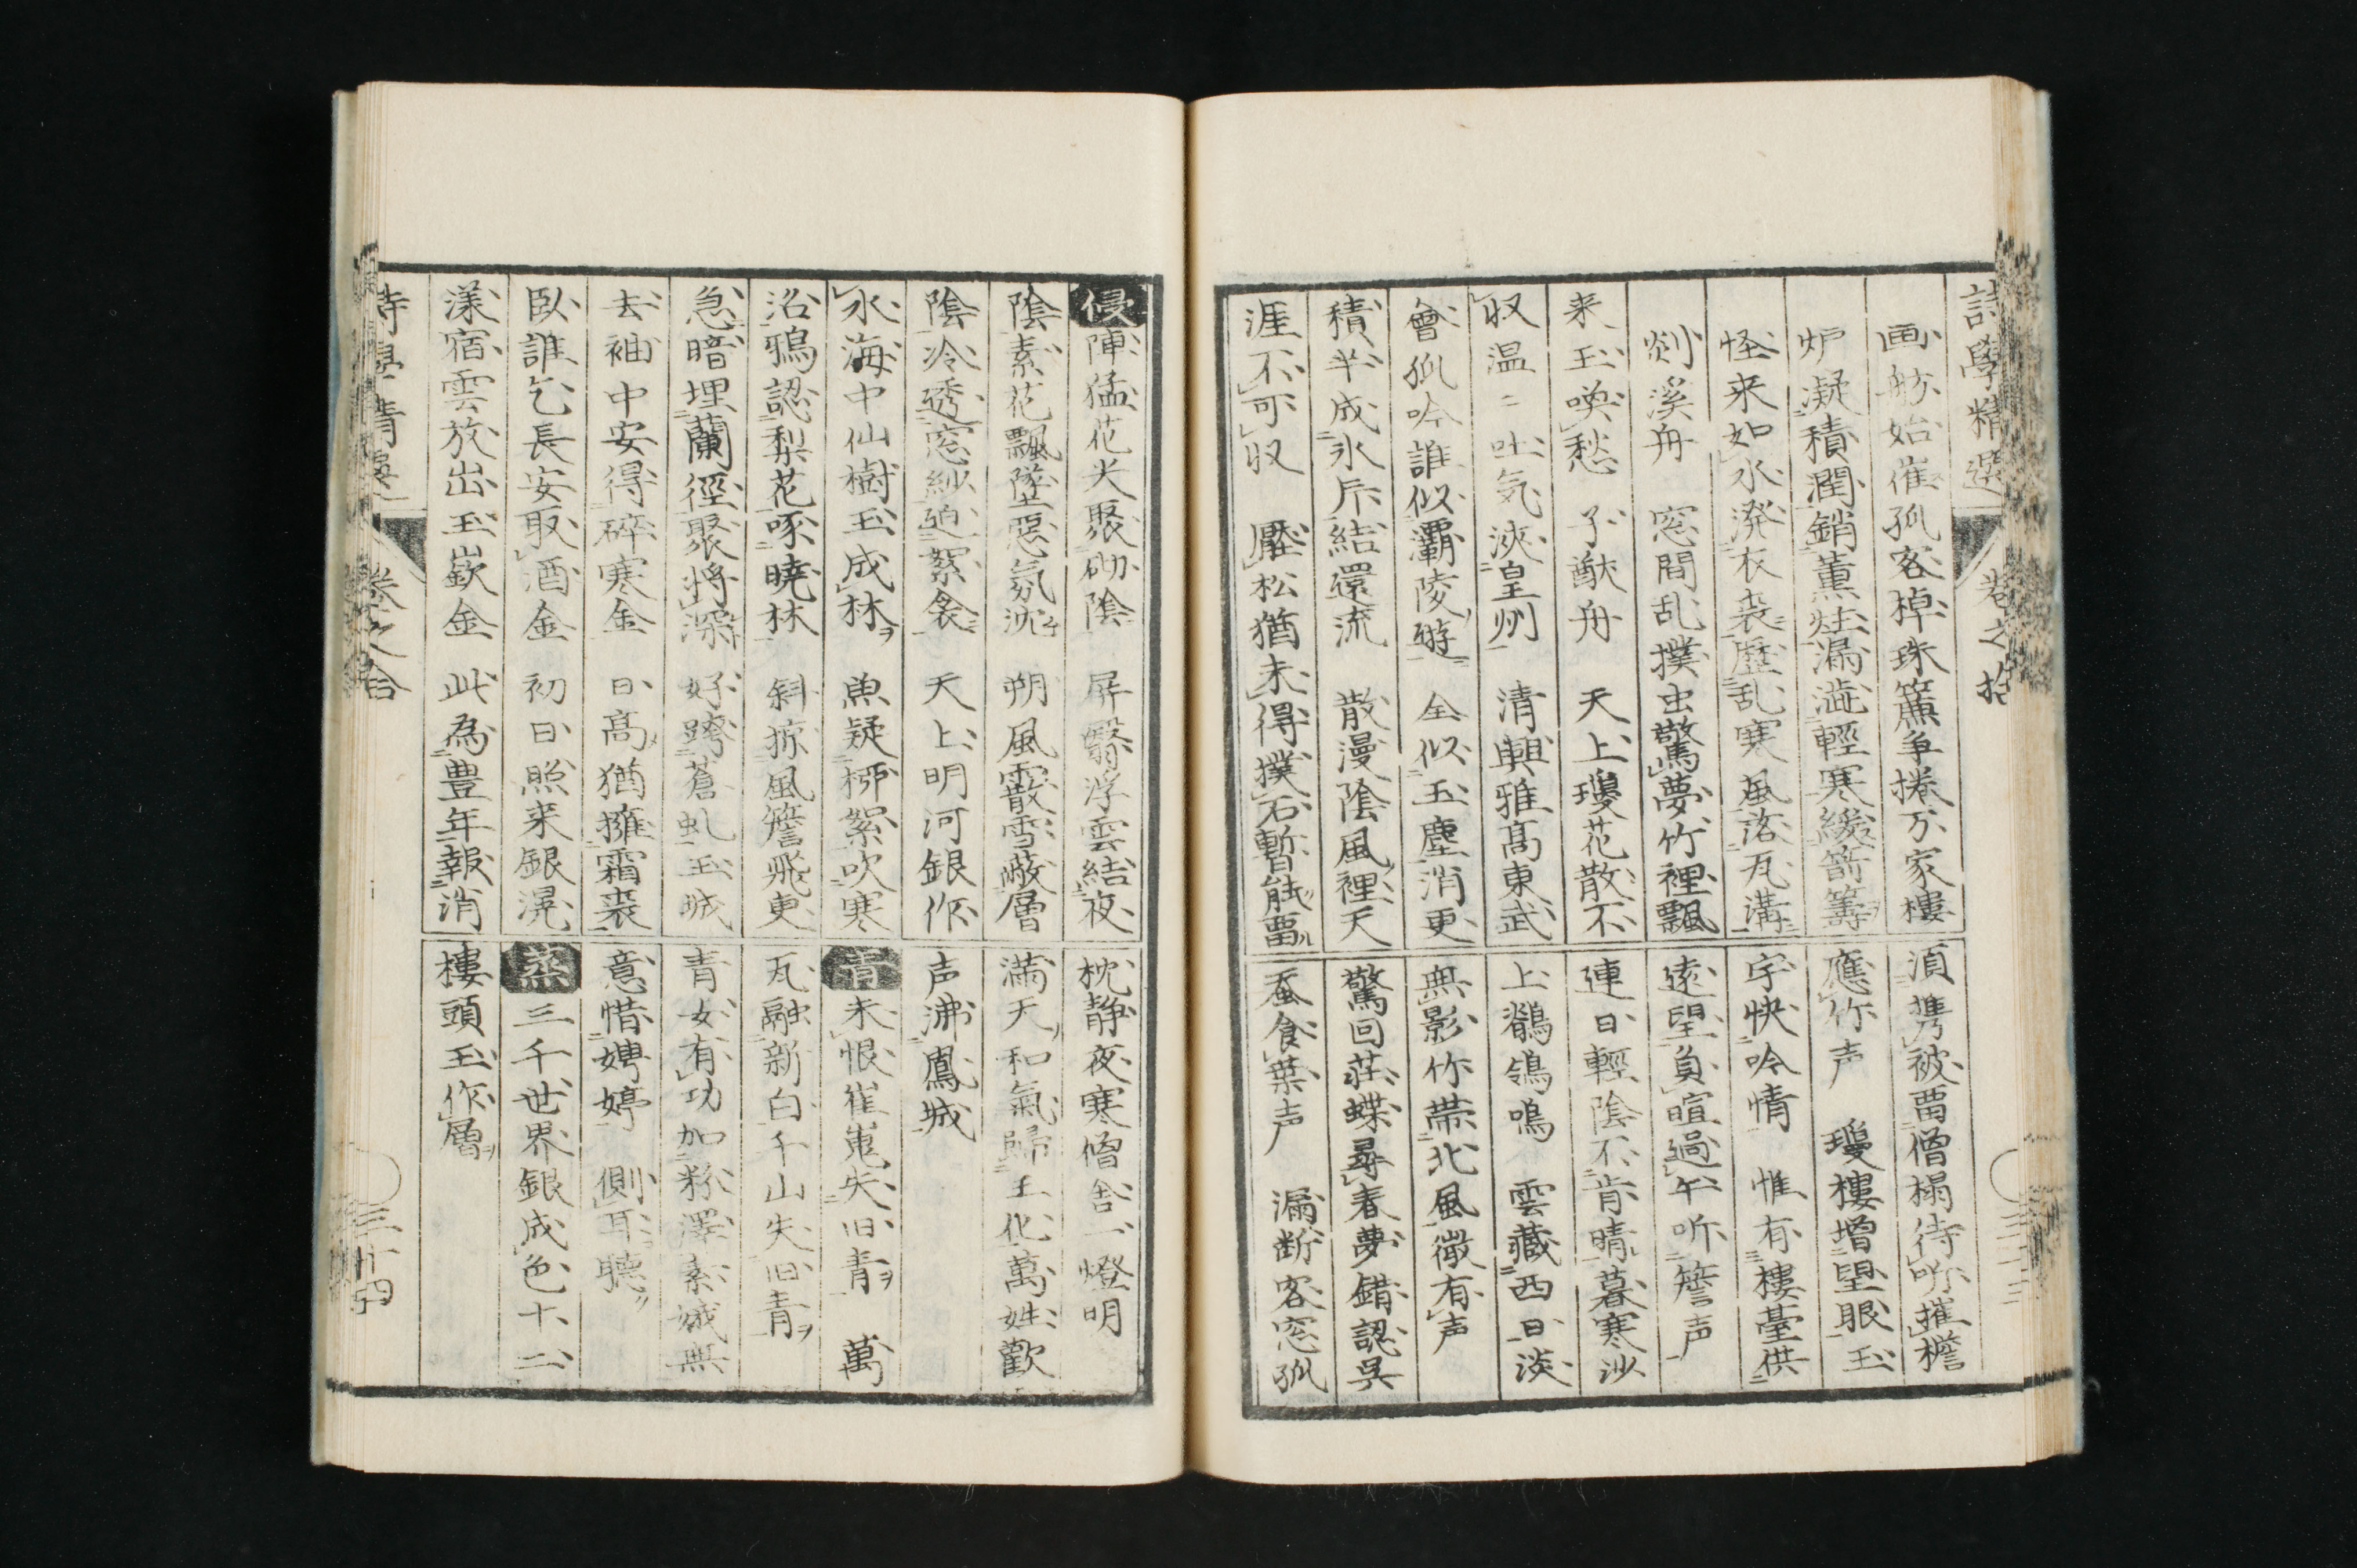 詩學精選 卷之拾
画舫始催孤客棹珠簾争捲万家樓
炉凝積潤銷薫炷漏澁輕寒緩箭籌
怪来如水溌衣袭壓乱寒風落瓦溝
剡溪舟 窓間乱撲虫驚夢竹裡飄
来玉喚愁 子猷舟 天上瓊花散不
収温二吐気浹皇州 清興雅高東武
會孤吟誰似灞陵遊 全似玉塵消更
積半成氷片結還流 散漫陰風裡天
涯不可収 壓松猶未得撲石暫能畱
湏携被畱僧榻待听摧檐
應竹声 瓊樓増望眼玉
宇快吟情 惟有樓臺供
遠望負暄過午听簷声
連日輕陰不肯晴暮寒沙
上鶺鴒鳴 雲藏西日淡
無影竹帯北風微有声
驚回莊蝶尋春夢錯認呉
蚕食葉声 漏断客窓孤
三十三
侵陣猛花光聚砌陰 屏翳浮雲結夜
陰素花飄墜惡氛沈 朔風霰雪蔽層
陰冷透窓紗廹絮衾 天上明河銀作
水海中仙樹玉成林 魚疑栁絮吹寒
沼鴉認梨花啄曉林 斜掠風簷飛更
急暗埋蘭徑聚將深 好跨蒼虬玉城
去袖中安得碎寒金 日高猶擁霜裘
臥誰乞長安取酒金 初日照来銀滉
漾宿雲放出玉嶔金 此為豊年報消
枕静夜寒僧舎一燈明
滿天和氣歸王化萬姓歡
声沸鳳城
青 未恨崔嵬失旧青 萬
瓦融新白千山失旧青
青女有功加粉澤素娥無
意惜娉婷 側耳聴
蒸 三千世界銀成色十二
樓頭玉作層
三十四